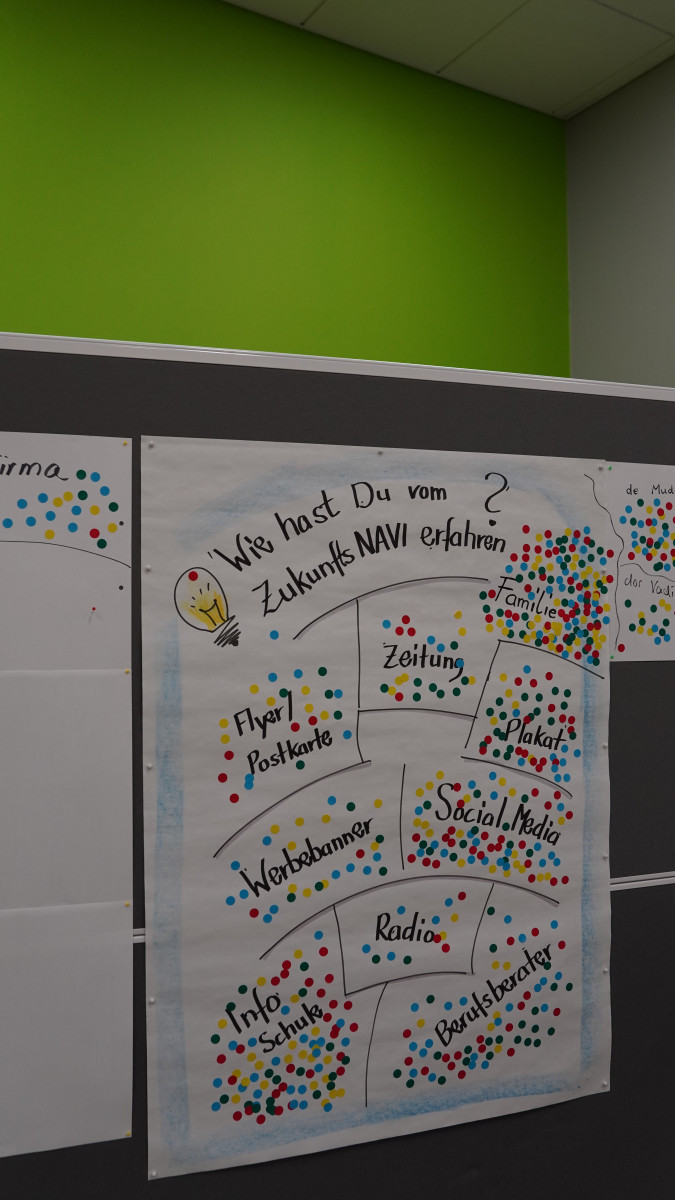 Wie hast Du vom
ZukunftsNAVI erfahren ?
Familie
Zeitung
Flyer/
Postkarte
Plakat
Werbebanner
Social Media
Radio
Info
Schule
Berufsberater
irma
de Mud